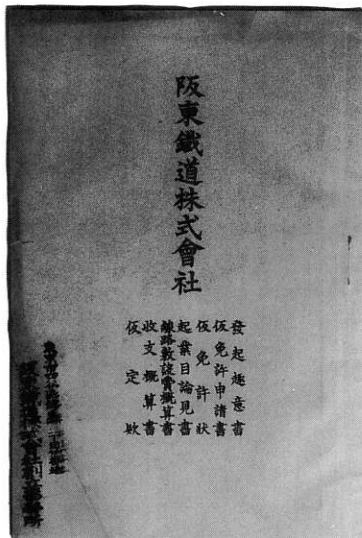 阪東鐵道株式會社
發起趣意書
仮免許申請書
仮免許狀
起業目論見書
線路敷設費概算書
收支概算書
仮定款